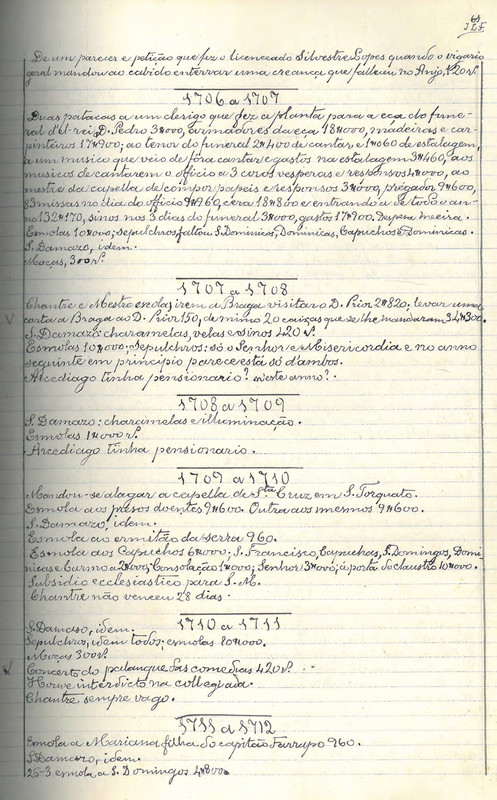 68
J.L.F.
De um parecer e petição que fez o licenceado Silvestre Lopes quando o vigario
geral mandou ao cabido enterrar uma creança que falleceu no Anjo, 120 rs.
1706 a 1707
Duas patacas a um clerigo que fez a planta para a eça do fune-
ral d'El-rei, D. Pedro 3#000, armadores da eça 18#000, madeiras e car-
pinteiros 17#900; ao tenor do funeral 2#400 de cantar, e 1#060 de estalagem,
a um musico que veio de fóra cantar e gastos na estalagem 3#460, aos
musicos de cantarem o officio a 3 coros vesperas e responsos 4#000, ao
mestre da capella de compôr papeis e responsos 3#000, prégador 9#600,
83 missas no dia do officio 9#960, cera 18#800 e entrando a de todo o an-
no 132#170, sinos nos 3 dias do funeral 3#000, gastos 17#900. Despesa meeira.
Esmolas 10#000; sepulchros, faltou S. Dominicos, Dominicas, Capuchos e Dominicas.
S. Damazo, idem.
Moças, 300 rs.
1707 a 1708
Chantre e Mestre escola, irem a Braga visitar o D. Prior 2#820; levar uma
carta a Braga ao D. Prior 150, de mimo 20 caixas que se lhe mandaram 34#300.
S. Damazo charamelas, velas e sinos 420 rs.
Esmolas 10#000; Sepulchros: só o Senhor e Misericordia e no anno
seguinte em principio parece está só d'ambos.
Arcediago tinha pensionario? n'este anno?.
1708 a 1709
S. Damazo: charamelas e illuminação.
Esmolas 1#000 rs.
Arcediago tinha pensionario.
1709 a 1710
Mandou-se alagar a capella de Sta Cruz em S. Torquato.
Esmola aos presos doentes 9#600. Outra aos mesmos 9#600.
S. Damazo, idem.
Esmola ao ermitão da serra 960.
Esmola aos Capuchos 6#000; S. Francisco, Capuchas, S. Domingos, Domi-
nicas e Carmo a 2#000; Consolação 1#000; Senhor 3#000; á porta do claustro 10#000.
Subsidio ecclesiastico para S. M.
Chantre não venceu 28 dias.
1710 a 1711
S. Damaso, idem.
Sepulchros, idem todos; esmolas 80#000.
Moças 300 rs.
Concerto do palanque das comedias 420 rs.
Houve interdicto na collegiada.
Chantre sempre vago.
1711 a 1712
Esmola a Mariana filha do capitão Farrapo 960.
S. Damazo, idem.
26-3 esmola a S. Domingos 4#800